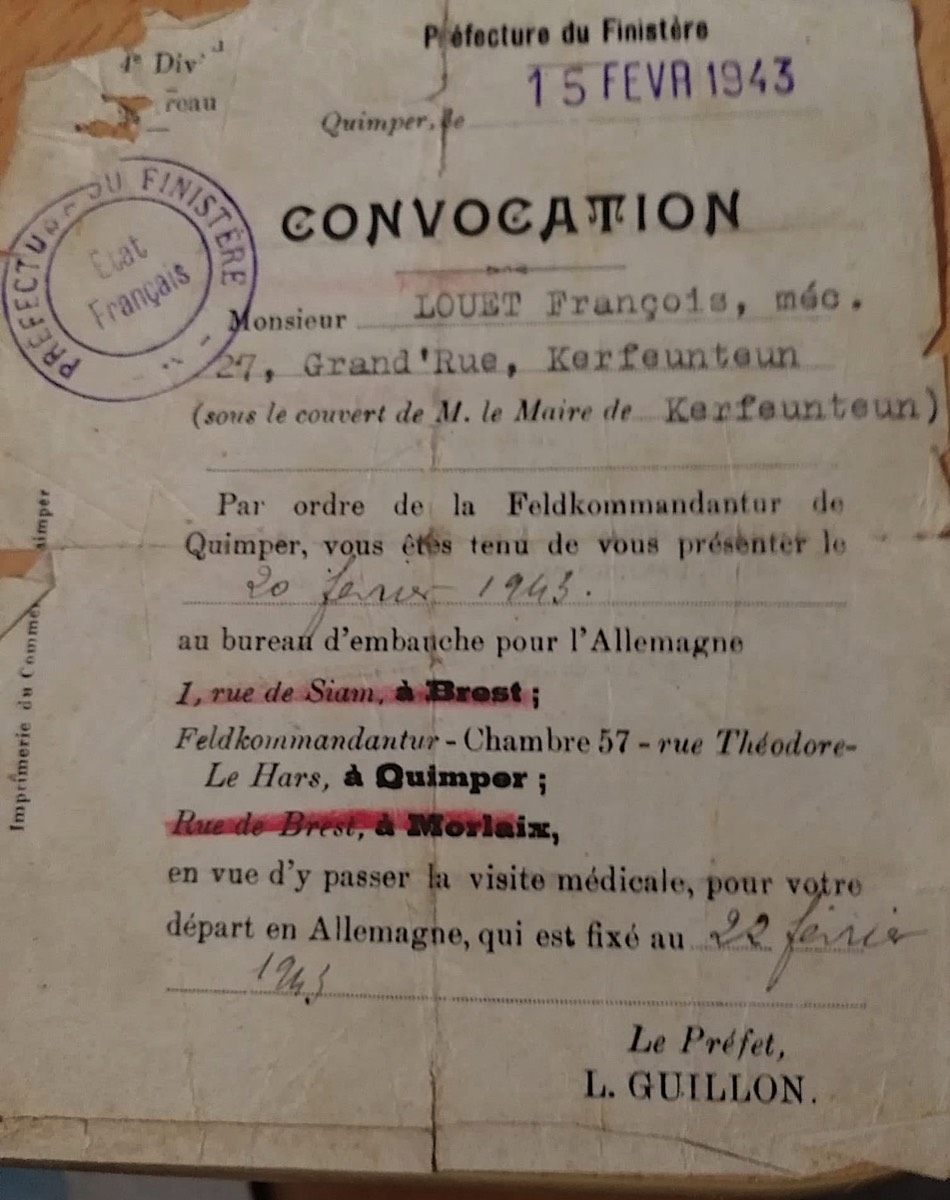 Préfecture du Finistère
4e Div
reau
15 FEVR 1943
Quimper, le
PRÉFECTURE DU FINISTÈRE
Etat
Français
CONVOCATION
Monsieur LOUET François, méc.
27, Grand'Rue, Kerfeunteun
(sous le couvert de M. le Maire de Kerfeunteun)
Par ordre de la Feldkommandantur de
Quimper, vous êtes tenu de vous présenter le
20 février 1943.
au bureau d'embauche pour l'Allemagne
1, rue de Siam, à Brest ;
Feldkommandantur - Chambre 57 - rue Théodore-
Le Hars, à Quimper ;
Rue de Brest, à Morlaix,
en vue d'y passer la visite médicale, pour votre
départ en Allemagne, qui est fixé au 22 février
1943
Le Préfet,
L. GUILLON.
Imprimerie du Comme uimper